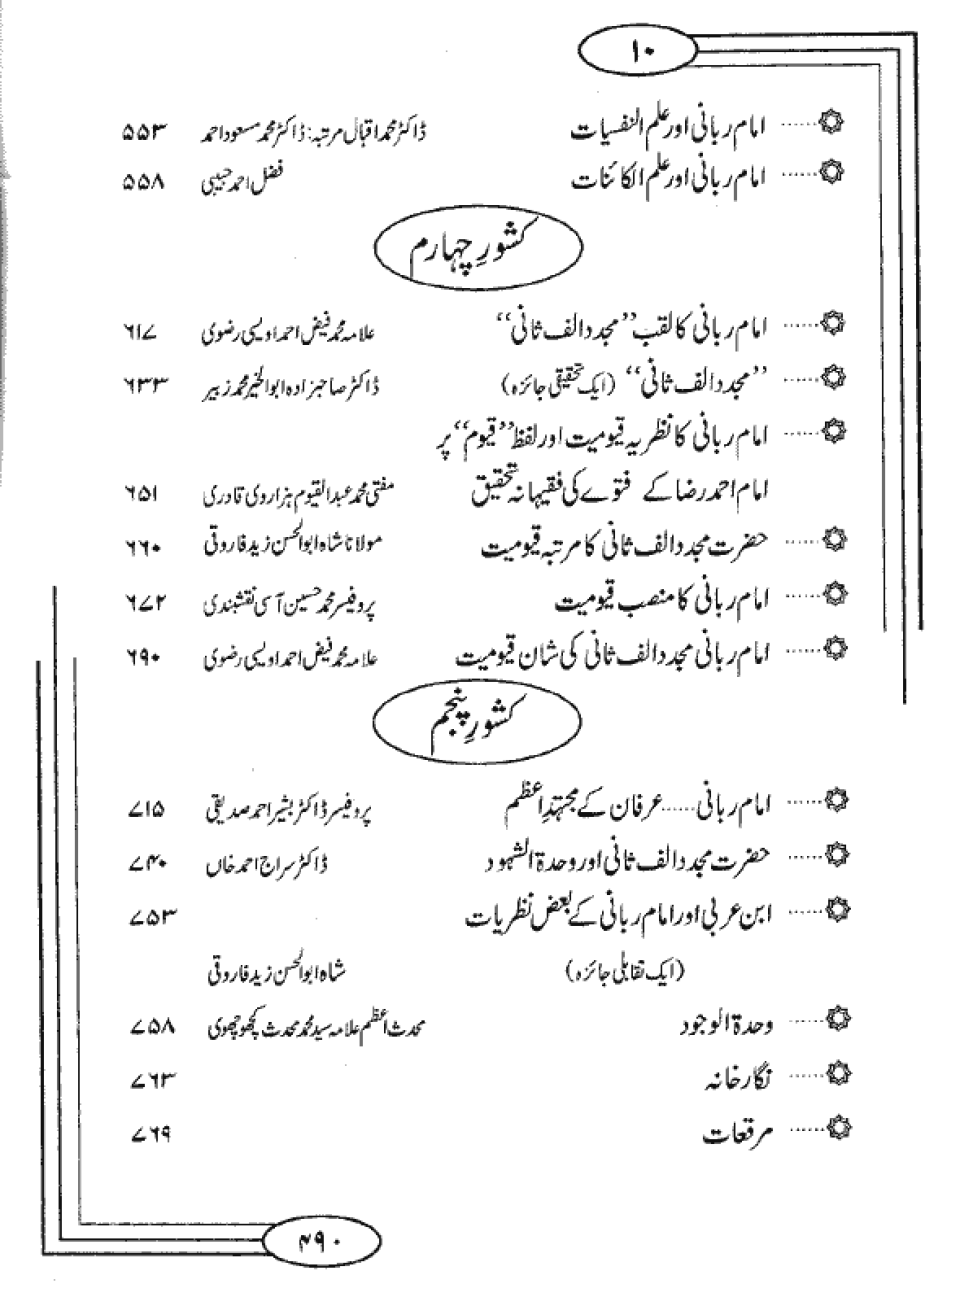 ۱۰
امام ربانی اور علم النفسیات ڈاکٹر محمد اقبال مرتبہ: ڈاکٹر محمد مسعود احمد ۵۵۳
امام ربانی اور علم الکائنات فضل احمد حبیبی ۵۵۸
کشورِ چہارم
امام ربانی کا لقب ’’مجدد الف ثانی‘‘ علامہ محمد فیض احمد اویسی رضوی ۶۱۷
’’مجدد الف ثانی‘‘ (ایک تحقیقی جائزہ) ڈاکٹر صاحبزادہ ابوالخیر محمد زبیر ۶۳۳
امام ربانی کا نظریہ قیومیت اور لفظ ’’قیوم‘‘ پر
امام احمد رضا کے فتوے کی فقیہانہ تحقیق مفتی محمد عبدالقیوم ہزاروی قادری ۶۵۱
حضرت مجدد الف ثانی کا مرتبہ قیومیت مولانا شاہ ابوالحسن زید فاروقی ۶۶۰
امام ربانی کا منصب قیومیت پروفیسر محمد حسین آسی نقشبندی ۶۷۲
امام ربانی مجدد الف ثانی کی شان قیومیت علامہ محمد فیض احمد اویسی رضوی ۶۹۰
کشورِ پنجم
امام ربانی......عرفان کے مجتہدِ اعظم پروفیسر ڈاکٹر بشیر احمد صدیقی ۷۱۵
حضرت مجدد الف ثانی اور وحدۃ الشہود ڈاکٹر سراج احمد خاں ۷۴۰
ابن عربی اور امام ربانی کے بعض نظریات ۷۵۳
(ایک تقابلی جائزہ) شاہ ابوالحسن زید فاروقی
وحدۃ الوجود محدث اعظم علامہ سید محمد محدث کچھوچھوی ۷۵۸
نگار خانہ ۷۶۳
مرقعات ۷۶۹
۴۹۰